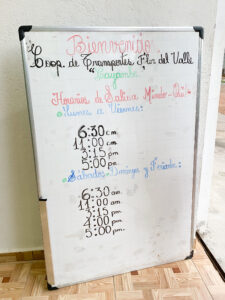 Bienvenido
Coop. de Transportes Flor del Valle
"Cayambe"
Horarios de Salida Mindo - Quito
Lunes a Viernes:
6:30 am
11:00 am
3:15 pm
5:00 pm
Sábados - Domingos y Feriados:
6:30 am
11:00 am
pm
pm
5:00 pm